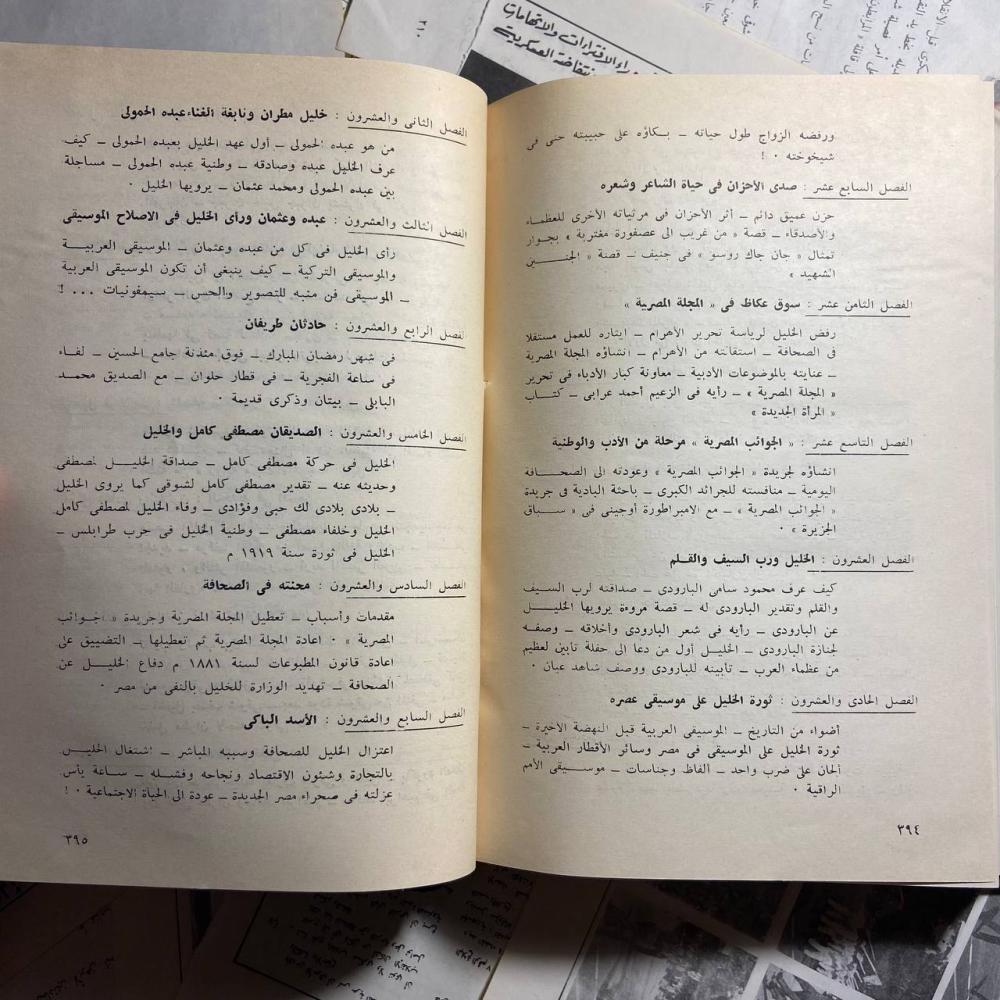 ورفضه الزواج طول حياته – بكاؤه على حبيبته حتى فى
شيخوخته ٠ !
الفصل السابع عشر : صدى الأحزان فى حياة الشاعر وشعره
حزن عميق دائم – أثر الأحزان فى مرثياته الأخرى للعظماء
والأصدقاء – قصة « من غريب الى عصفورة مغتربة » بجوار
تمثال « جان جاك روسو » فى جنيف – قصة « الجنين
الشهيد »
الفصل الثامن عشر : سوق عكاظ فى « المجلة المصرية »
رفض الخليل لرياسة تحرير الأهرام – ايثاره للعمل مستقلا
فى الصحافة – استقالته من الأهرام – انشاؤه المجلة المصرية
– عنايته بالموضوعات الأدبية – معاونة كبار الأدباء فى تحرير
« المجلة المصرية » – رأيه فى الزعيم أحمد عرابى – كتاب
« المرأة الجديدة »
الفصل التاسع عشر : « الجوائب المصرية » مرحلة من الأدب والوطنية
انشاؤه لجريدة « الجوائب المصرية » وعودته الى الصحافة
اليومية – منافسته للجرائد الكبرى – باحثة البادية فى جريدة
« الجوائب المصرية » – مع الامبراطورة أوجينى فى « سباق
الجزيرة » ٠
الفصل العشرون : الخليل ورب السيف والقلم
كيف عرف محمود سامى البارودى – صداقته لرب السيف
والقلم وتقدير البارودى له – قصة مروءة يرويها الخليل
عن البارودى – رأيه فى شعر البارودى وأخلاقه – وصفه
لجنازة البارودى – الخليل أول من دعا الى حفلة تأبين لعظيم
من عظماء العرب – تأبينه للبارودى ووصف شاهد عيان ٠
الفصل الحادى والعشرون : ثورة الخليل على موسيقى عصره
أضواء من التاريخ – الموسيقى العربية قبل النهضة الأخيرة –
ثورة الخليل على الموسيقى فى مصر وسائر الأقطار العربية –
ألحان على ضرب واحد – ألفاظ وجناسات – موسيقى الأمم
الراقية ٠
٣٩٤
الفصل الثانى والعشرون : خليل مطران ونابغة الغناء عبده الحمولى
من هو عبده الحمولى – أول عهد الخليل بعبده الحمولى – كيف
عرف الخليل عبده وصادقه – وطنية عبده الحمولى – مساجلة
بين عبده الحمولى ومحمد عثمان – يرويها الخليل ٠
الفصل الثالث والعشرون : عبده وعثمان ورأى الخليل فى الاصلاح الموسيقى
رأى الخليل فى كل من عبده وعثمان – الموسيقى العربية
والموسيقى التركية – كيف ينبغى أن تكون الموسيقى العربية
– الموسيقى فن متبه للتصوير والحس – سيمفونيات ٠٠٠ !
الفصل الرابع والعشرون : حادثان طريفان
فى شهر رمضان المبارك – فوق مئذنة جامع الحسين – لقاء
فى ساعة الفجرية – فى قطار حلوان – مع الصديق محمد
البابلى – بيتان وذكرى قديمة ٠
الفصل الخامس والعشرون : الصديقان مصطفى كامل والخليل
الخليل فى حركة مصطفى كامل – صداقة الخليل لمصطفى
وحديثه عنه – تقدير مصطفى كامل لشوقى كما يروى الخليل
– بلادى بلادى لك حبى وفؤادى – وفاء الخليل لمصطفى كامل
الخليل وخلفاء مصطفى – وطنية الخليل فى حرب طرابلس –
الخليل فى ثورة سنة ١٩١٩ م
الفصل السادس والعشرون : محنته فى الصحافة
مقدمات وأسباب – تعطيل المجلة المصرية وجريدة « الجوائب
المصرية » ٠ اعادة المجلة المصرية ثم تعطيلها – التضييق على
اعادة قانون المطبوعات لسنة ١٨٨١ م دفاع الخليل عن
الصحافة – تهديد الوزارة للخليل بالنفى من مصر ٠
الفصل السابع والعشرون : الأسد الباكى
اعتزال الخليل للصحافة وسببه المباشر – اشتغال الخليل
بالتجارة وشئون الاقتصاد ونجاحه وفشله – ساعة يأس
عزلته فى صحراء مصر الجديدة – عودة الى الحياة الاجتماعية ٠ !
٣٩٥
٢١٠
الافتراءات والاتهامات